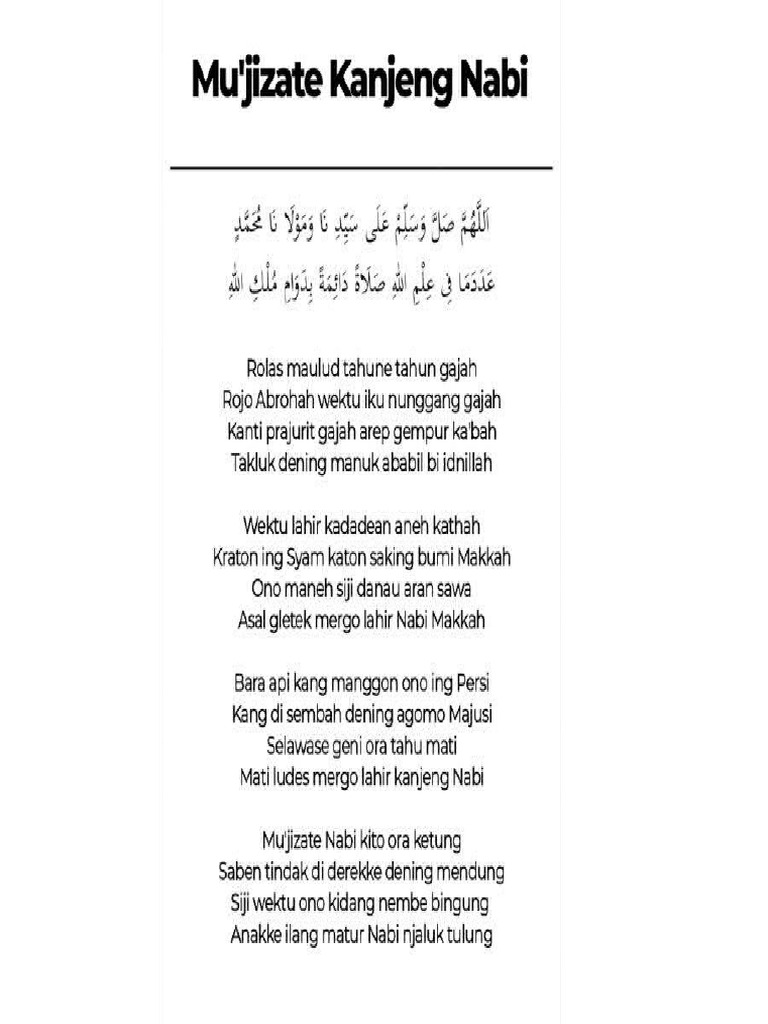 Mu'jizate Kanjeng Nabi
اَللّٰهُمَّ صَلِّ وَسَلِّمْ عَلَى سَيِّدِ نَا وَمَوْلَا نَا مُحَمَّدٍ
عَدَدَمَا فِى عِلْمِ اللهِ صَلَاةً دَائِمَةً بِدَوَامِ مُلْكِ اللهِ
Rolas maulud tahune tahun gajah
Rojo Abrohah wektu iku nunggang gajah
Kanti prajurit gajah arep gempur ka'bah
Takluk dening manuk ababil bi idnillah
Wektu lahir kadadean aneh kathah
Kraton ing Syam katon saking bumi Makkah
Ono maneh siji danau aran sawa
Asal gletek mergo lahir Nabi Makkah
Bara api kang manggon ono ing Persi
Kang di sembah dening agomo Majusi
Selawase geni ora tahu mati
Mati ludes mergo lahir kanjeng Nabi
Mu'jizate Nabi kito ora ketung
Saben tindak di derekke dening mendung
Siji wektu ono kidang nembe bingung
Anakke ilang matur Nabi njaluk tulung